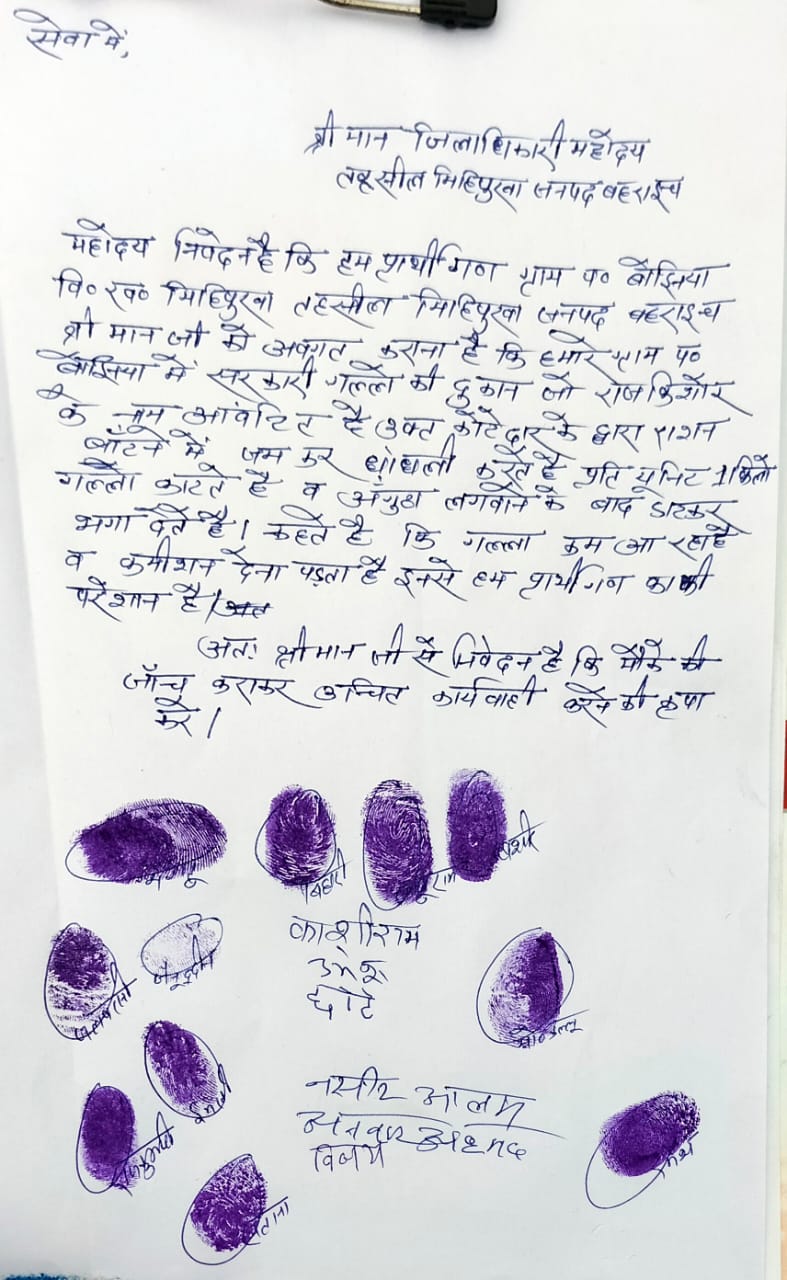 सेवा में,
श्री मान जिलाधिकारी महोदय
तहसील मिहिपुरवा जनपद बहराइच
महोदय निवेदन है कि हम प्रार्थीगण ग्राम प०
वि० ख० मिहिपुरवा तहसील मिहिपुरवा जनपद बहराइच
श्री मान जी को अवगत कराना है कि हमारे ग्राम प०
में सरकारी गल्ले की दुकान जो राजकिशोर
के नाम आवंटित है उक्त कोटेदार के द्वारा राशन
बाँटने में जम कर धांधली करते है प्रति यूनिट 1 किलो
गल्ला काटते है व अँगुठा लगवाने के बाद डाटकर
भगा देते है। कहते है कि गल्ला कम आ रहा है
व कमीशन देना पड़ता है इनसे हम प्रार्थीगण काफी
परेशान है।
अतः श्री मान जी से निवेदन है कि मौके की
जाँच कराकर उचित कार्यवाही करने की कृपा
करे।
बिहारी
काशीराम
छोटे
नसीर आलम
विजय